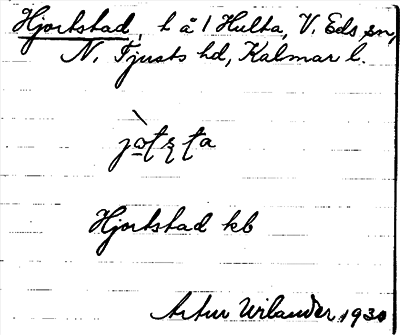 Hjortstad, t å 1 Hulta, V. Eds sn,
N. Tjusts hd, Kalmar l.
Hjortstad kb
Artur Wilander 1930